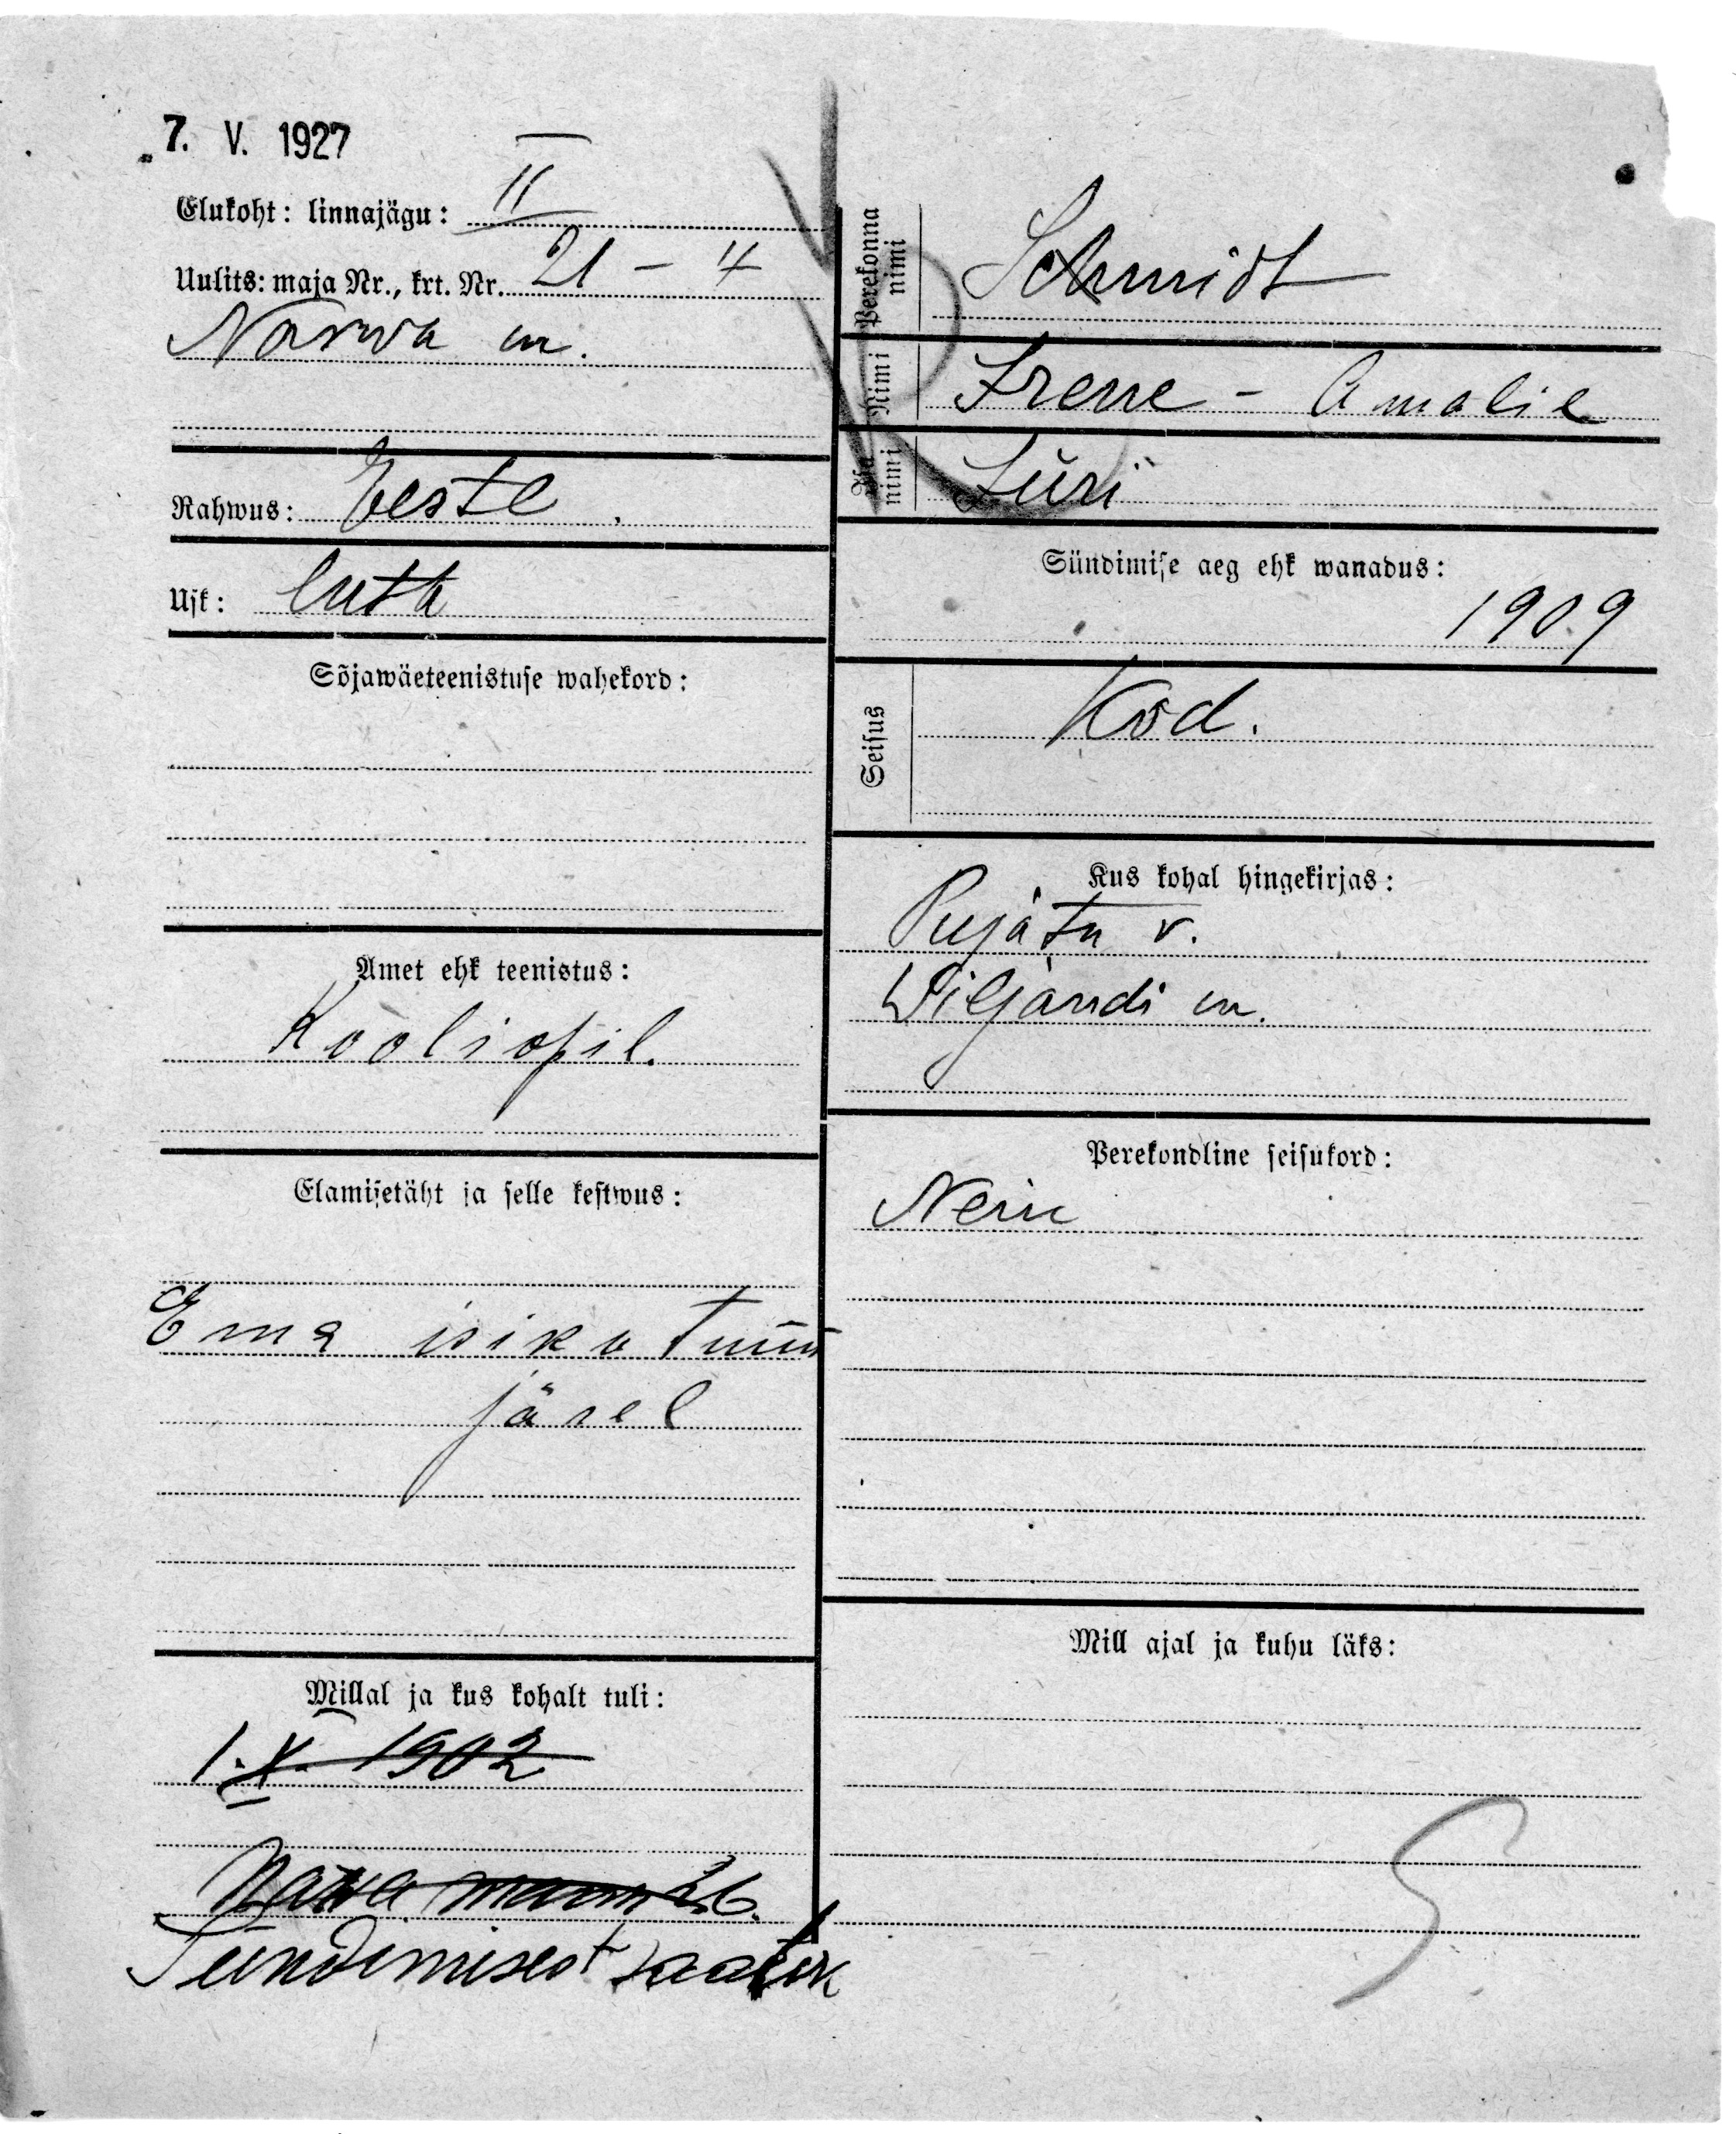 7. V. 1927
Elukoht: linnajägu: II
Uulits: maja Nr., krt. Nr. 21 - 4
Narwa m.
Rahwus: Eestl.
Usk: luth
Sõjawäeteenistuse wahekord:
Amet ehk teenistus:
Kooliõpil.
Elamisetäht ja selle kestwus:
Ema isiku tunn
järel
Millal ja kus kohalt tuli:
1. X. 1902
Narva
Sündimisest saadik
Perekonna nimi
Schmidt
Nimi
Irene - Amalie
Isa nimi
Jüri
Sündimise aeg ehk wanadus:
1909
Seisus
Kod.
Kus kohal hingekirjas:
Pujatu v.
Wiljandi m.
Perekondline seisukord:
Neiu
Mill ajal ja kuhu läks: